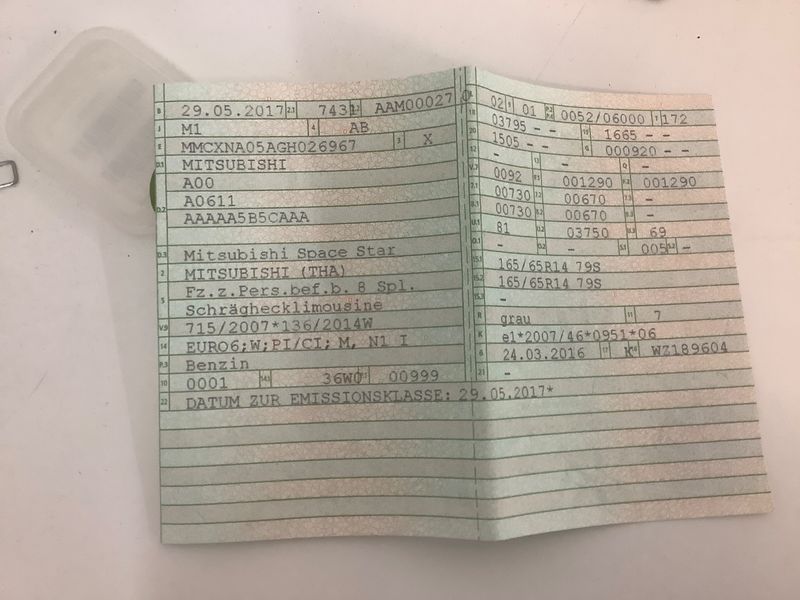 B 29.05.2017 2.1 743 2.2 AAM00027
J M1 4 AB
E MMCXNA05AGH026967 3 X
D.1 MITSUBISHI
A00
D.2 A0611
AAAAA5B5CAAA
D.3 Mitsubishi Space Star
2 MITSUBISHI (THA)
5 Fz.z.Pers.bef.b. 8 Spl.
Schräghecklimousine
V.9 715/2007*136/2014W
14 EURO6;W;PI/CI; M, N1 I
P.3 Benzin
10 0001 14.1 36W0 00999
22 DATUM ZUR EMISSIONSKLASSE: 29.05.2017*
02 9 01 P.2 P.4 0052/06000 T 172
18 03795 - - 19 1665 - -
20 1505 - - G 000920 - -
12 - 13 - Q -
V.7 0092 F.1 001290 F.2 001290
7.1 00730 7.2 00670 7.3 -
8.1 00730 8.2 00670 8.3 -
U.1 81 U.2 03750 U.3 69
O.1 - O.2 - S.1 005 S.2 -
15.1 165/65R14 79S
15.2 165/65R14 79S
15.3 -
R grau 11 7
K e1*2007/46*0951*06
6 24.03.2016 17 K 16 WZ189604
21 -